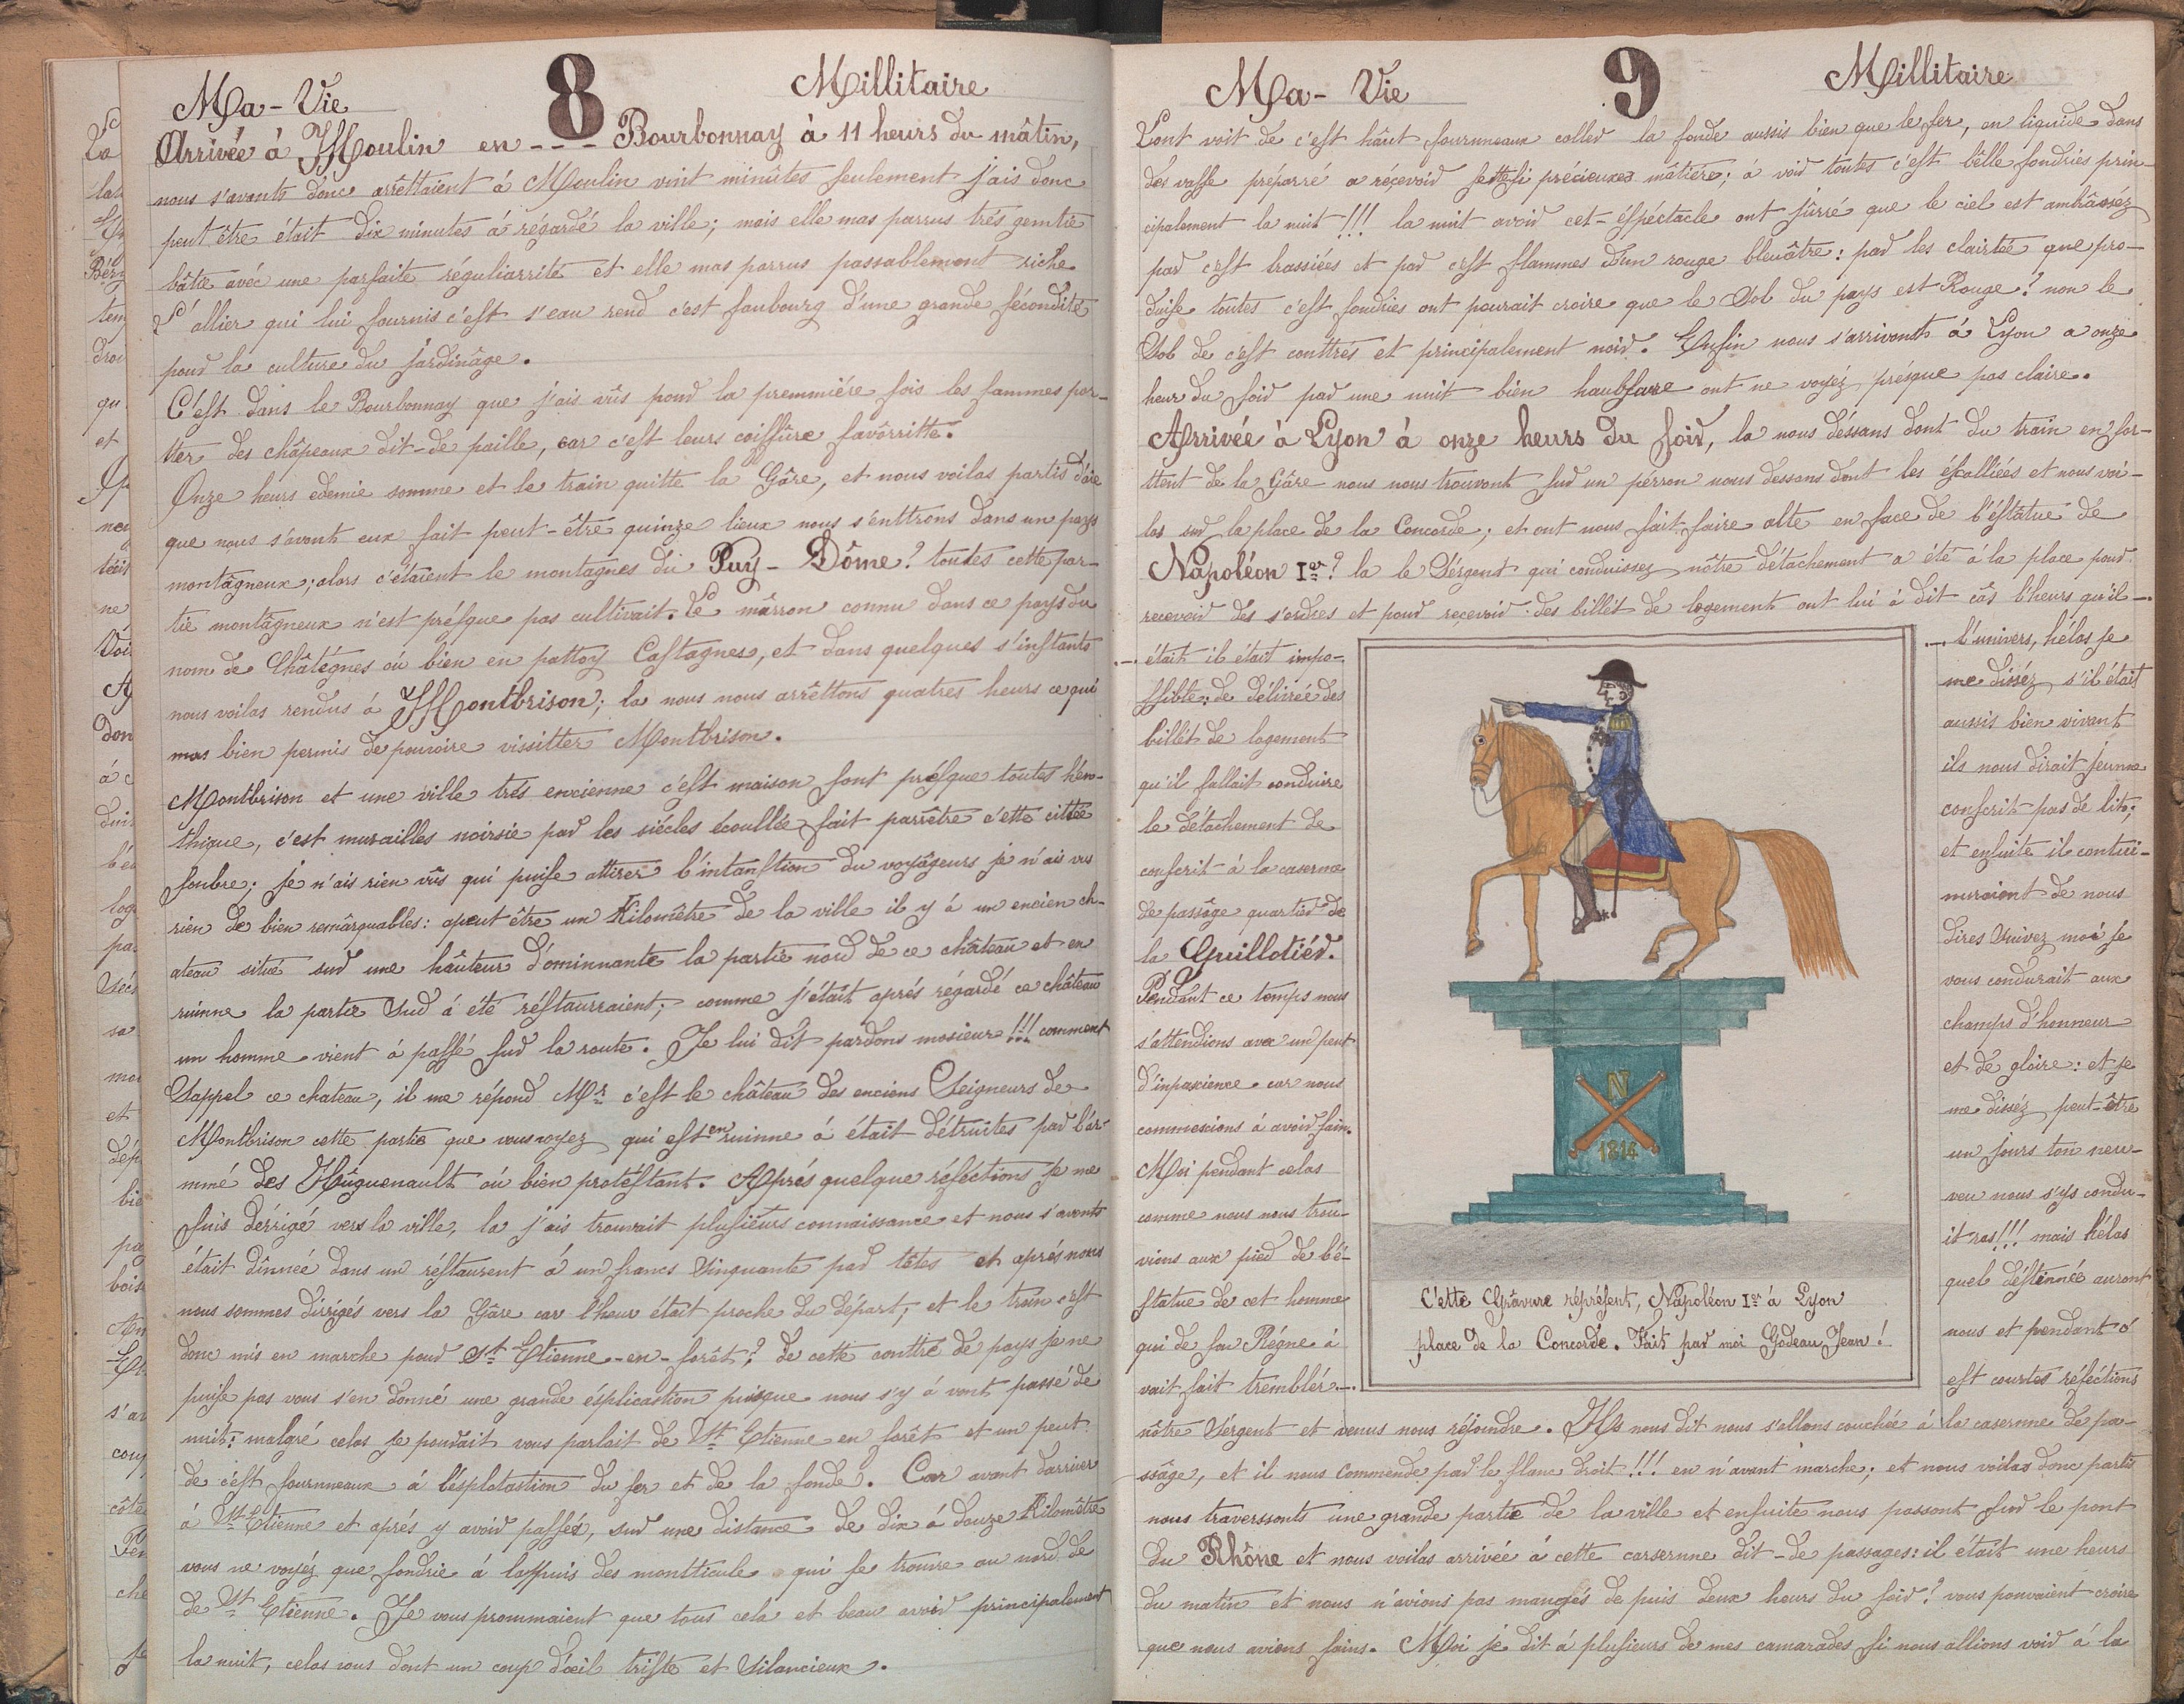 Ma - Vie 8 Millitaire
Arrivée à Moulin en - - - Bourbonnay à 11 heurs du mâtin,
nous s'avants donc arrêttaient á Moulin vint minûtes seulement j'ais donc
peut être était dix minutes á régardé la ville; mais elle mas parrus trés gentie
bâtie avéc une parfaite réguliarrité et elle mas parrus passablement riche
L'allier qui lui fournis c'est s'eau rend c'est faubourg d'une grande fécondité
pour la culture du jardinâge.
C'est dans le Bourbonnay que j'ais vûs pour la premmiére fois les fammes por-
tter des châpeaux dit-de paille, car c'est leurs coiffûre favôrritte.
Onze heurs edemie somme et le train quitte la Gâre, et nous voilas partis d'àie
que nous s'avont eux fait peut-être quinze lieux nous s'enttrons dans un pays
montâgneux; alors c'étaient le montâgnes du Puy - Dôme? toutes cette par-
tie montâgneux n'est présque pas cultivait. Le mârron connu dans ce pays du
nom de Châtégnes où bien en pattoy Castagnes, et dans quelques s'instants
nous voilas rendus á Montbrison; la nous nous arrêttons quatres heurs ce qui
mas bien permis de pouvoire vissitter Montbrison.
Montbrison et une ville trés encienne c'est maison sont présque toutes hém-
thique, c'est murailles noirsie par les siécles écoullée fait parrêtre c'ette cittée
sonbre; je n'ais rien vûs qui puise attirer l'intanstion du voyâgeurs je n'ais vus
rien de bien remârquables: apeut être un Kilomêtre de la ville il y á un encien ch-
ateau situé sur une hâuteur d'ominnante la partie nord de ce château et en
ruinne la partie Sud á été réstaurraient; comme j'était aprés régardé ce château
un homme vient á passé sur la route. Je lui dit pardons mosieur!!! comment
Sappel ce chateau, il me répond Mr c'est le château des enciens Seigneurs de
Montbrison cette partie que vous voyez qui est en ruinne á était détruites par l'ar-
mmé des Hûguenault où bien protéstant. Aprés quelque réféctions je me
suis dérrigé vers la ville, la j'ais trouvait plusieurs connaissance et nous s'avents
était dînnée dans un réstaurent á un francs Sinquante par têtes et aprés nous
nous sommes dirrigés vers la Gâre car l'heur était proche du départ, et le train c'est
donc mis en marche pour St Etienne-en-forêt? de cette conttré de pays je ne
puise pas vous s'en donné une grande ésplicastion puisque nous s'y á vont passé de
nuit: malgré celas je pourait vous parlait de St Etienne en forêt et un peut
de c'est fournneaux á l'ésplotastion du fer et de la fonde. Car avant d'arriver
á St Etienne et aprés y avoir passées, sur une distance de dix á douze Kilomêtre
vous ne voyéz que fondrie á lappuis des montticule qui se trouve au nord de
de St Etienne. Je vous prommaient que tous cela et beau avoir principalement
la nuit, celas vous dont un coup d'œil triste et Silancieux.
Ma - Vie 9 Millitaire
L'ont voit de c'est hâut fournneaux coller la fonde aussis bien que le fer, en liquide dans
des vasse préparré a réçevoir sette si précieuxes mâtiére; á voir toutes c'est bêlle fondriés prin-
cipalement la nuit!!! la nuit avoir cet-éspéctacle ont jûrré que le ciel est ambrâssez
par c'est brassiées et par c'est flammes d'un rouge bleuâtre: par les clairtée que pro-
duise toutes c'est fondriés ont pourait croire que le Sol du pays est Rouge? non le
Sol de c'est conttrés et principalement noir. Enfin nous s'arrivont á Lyon a onze
heur du soir par une nuit bien haubscure ont ne voyéz présque pas claire.
Arrivée à Lyon à onze heurs du soir, la nous déssans dont du train en sor-
ttent de la Gâre nous nous trouvont sur un pérron nous dessans dont les éscalliéés et nous voi-
las sur la place de la Concorde; et ont nous fait faire alte en face de l'éstâtue de
Napoléon Ier? la le Sérgent qui conduissez nôtre détachement a été á la place pour
recevoir des s'ordres et pour reçevoir des billét de logement ont lui á dit câs l'heurs qu'il-.
.- était il était impo-
ssible; de délivrée des
billét de logement
qu'il fallait conduire
le détachement de
conscrit á la caserne
de passâge quartier de
la Guillotiér.
Pendant ce temps nous
s'attendions avec un peut
d'inpascience car nous
commescions á avoir fain.
Moi pendant celas
comme nous nous trou-
vions aux pied de l'é-
statue de cet homme
qui de son Régne á
vait fait tremblér.-.
N
1814
C'ette Grâvure réprésent, Napoléon Ier à Lyon
place de la Concorde. Fait par moi Godeau Jean!
.- l'univers, hélas je
me disséz s'il était
aussis bien vivant
ils nous dirait jeunne
conscrit pas de lito;
et ensuite il contici-
nuraient de nous
dires Suivez moi je
vous condurait aux
champs d'honneur
et de gloire: et je
me disséz peut-être
un jours ton neu-
veu nous s'ys condu-
it ras!!! mais hélas
quel déstinnée auront
nous et pendant c'
est courtes réféctions
nôtre Sérgent et venus nous réjoindre. Ils nous dit nous s'allons couchée á la casernne de pa-
ssâge, et il nous commende par le flanc droit!!! en n'avant marche; et nous voilas donc partis
nous traverssonts une grande partie de la ville et ensuite nous passont sur le pont
du Rhône et nous voilas arrivée á cette carsernne dit-de passages: il était une heurs
du matin et nous n'avions pas mangés de puis deux heurs du soir? vous pouvaient croire
que nous avions fains. Moi je dit á plusieurs de mes camarades si nous allions voir á la